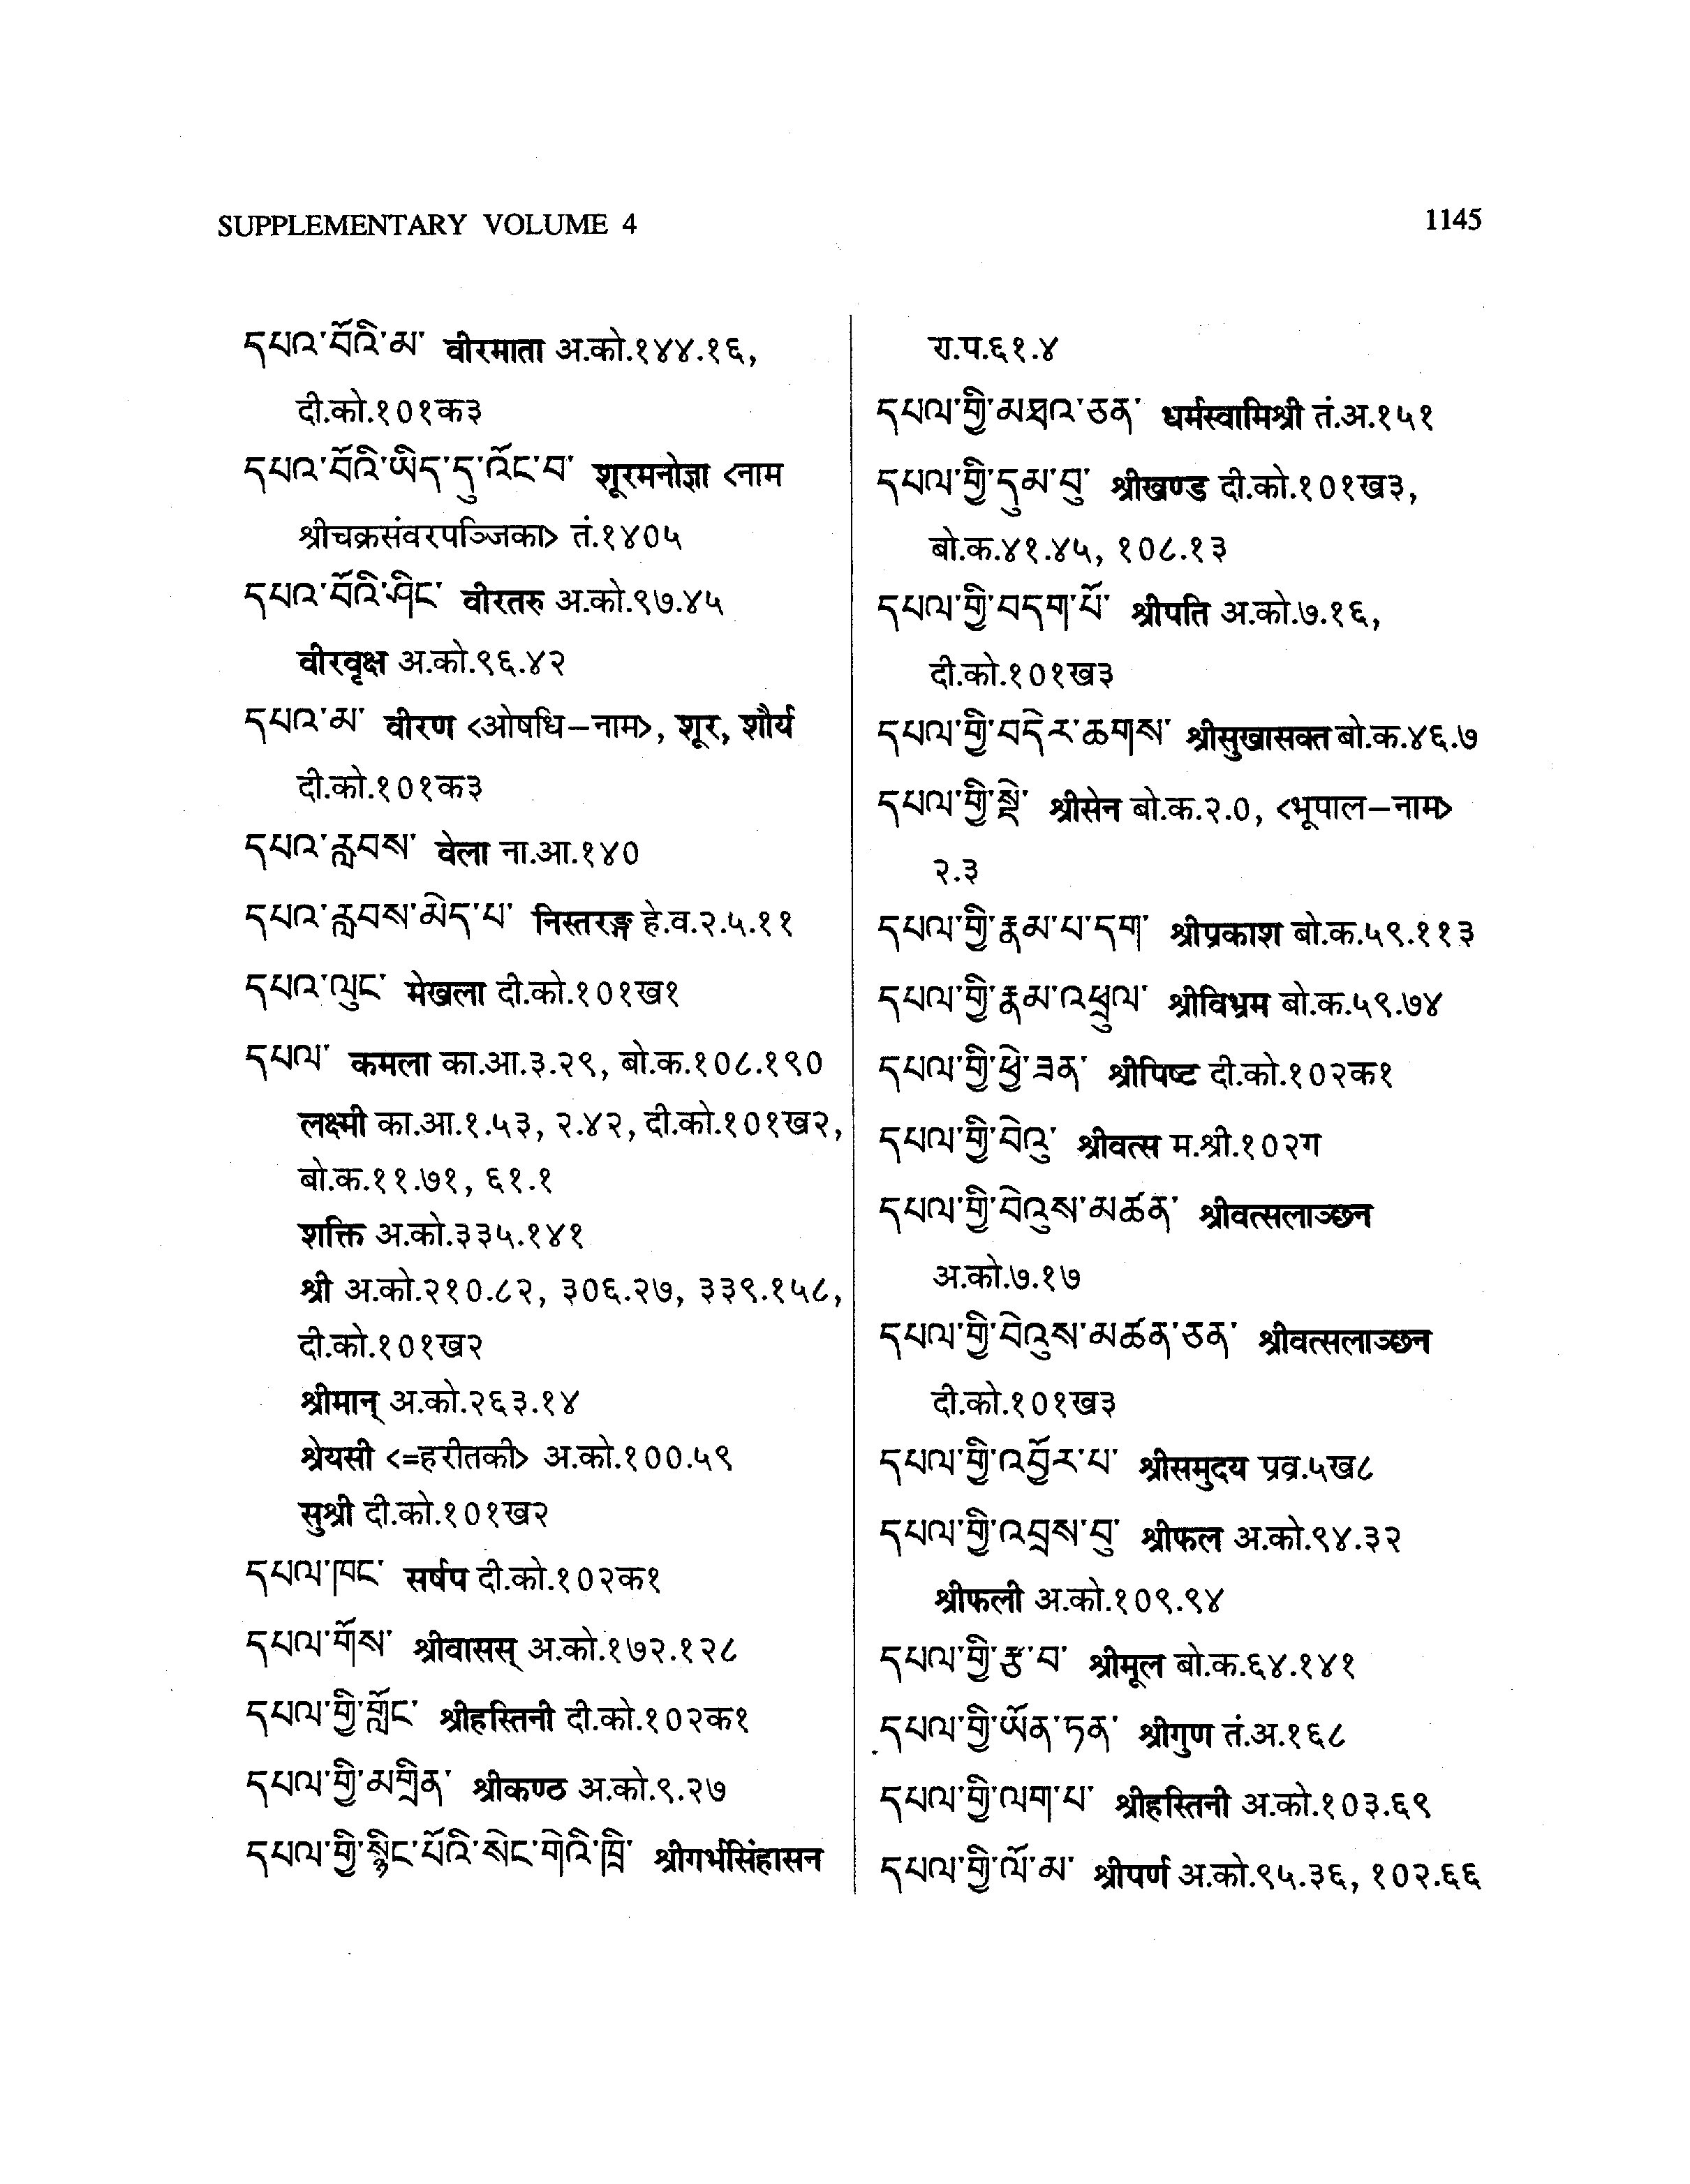 SUPPLEMENTARY VOLUME 4
1145
དཔའ་བོའི་མ་ वीरमाता अ.को.१४४.१६,
दी.को.१०१क३
དཔའ་བོའི་ཡིད་དུ་འོང་བ་ शूरमनोज्ञा <नाम
श्रीचक्रसंवरपञ्जिका> तं.१४०५
དཔའ་བོའི་ཤིང་ वीरतरु अ.को.९७.४५
वीरवृक्ष अ.को.९६.४२
དཔའ་མ་ वीरण <ओषधि–नाम>, शूर, शौर्य
दी.को.१०१क३
དཔའ་རླབས་ वेला ना.आ.१४०
དཔའ་རླབས་མེད་པ་ निस्तरङ्ग हे.व.२.५.११
དཔའ་ལུང་ मेखला दी.को.१०१ख१
དཔལ་ कमला का.आ.३.२९, बो.क.१०८.१९०
लक्ष्मी का.आ.१.५३, २.४२, दी.को.१०१ख२,
बो.क.११.७१, ६१.१
शक्ति अ.को.३३५.१४१
श्री अ.को.२१०.८२, ३०६.२७, ३३९.१५८,
दी.को.१०१ख२
श्रीमान् अ.को.२६३.१४
श्रेयसी <=हरीतकी> अ.को.१००.५९
सुश्री दी.को.१०१ख२
དཔལ་ཁང་ सर्षप दी.को.१०२क१
དཔལ་གོས་ श्रीवासस् अ.को.१७२.१२८
དཔལ་གྱི་གློང་ श्रीहस्तिनी दी.को.१०२क१
དཔལ་གྱི་མགྲིན་ श्रीकण्ठ अ.को.९.२७
དཔལ་གྱི་སྙིང་པོའི་སེང་གེའི་ཁྲི་ श्रीगर्भसिंहासन
रा.प.६१.४
དཔལ་གྱི་མཐའ་ཅན་ धर्मस्वामिश्री तं.अ.१५१
དཔལ་གྱི་དུམ་བུ་ श्रीखण्ड दी.को.१०१ख३,
बो.क.४१.४५, १०८.१३
དཔལ་གྱི་བདག་པོ་ श्रीपति अ.को.७.१६,
दी.को.१०१ख३
དཔལ་གྱི་བདེར་ཆགས་ श्रीसुखासक्त बो.क.४६.७
དཔལ་གྱི་སྡེ་ श्रीसेन बो.क.२.०, <भूपाल–नाम>
२.३
དཔལ་གྱི་རྣམ་པ་དག་ श्रीप्रकाश बो.क.५९.११३
དཔལ་གྱི་རྣམ་འཕྲུལ་ श्रीविभ्रम बो.क.५९.७४
དཔལ་གྱི་ཕྱེ་ཟན་ श्रीपिष्ट दी.को.१०२क१
དཔལ་གྱི་བེའུ་ श्रीवत्स म.श्री.१०२ग
དཔལ་གྱི་བེའུས་མཚན་ श्रीवत्सलाञ्छन
अ.को.७.१७
དཔལ་གྱི་བེའུས་མཚན་ཅན་ श्रीवत्सलाञ्छन
दी.को.१०१ख३
དཔལ་གྱི་འབྱོར་པ་ श्रीसमुदय प्रव्र.५ख८
དཔལ་གྱི་འབྲས་བུ་ श्रीफल अ.को.९४.३२
श्रीफली अ.को.१०९.९४
དཔལ་གྱི་རྩ་བ་ श्रीमूल बो.क.६४.१४१
དཔལ་གྱི་ཡོན་ཏན་ श्रीगुण तं.अ.१६८
དཔལ་གྱི་ལག་པ་ श्रीहस्तिनी अ.को.१०३.६९
དཔལ་གྱི་ལོ་མ་ श्रीपर्ण अ.को.९५.३६, १०२.६६